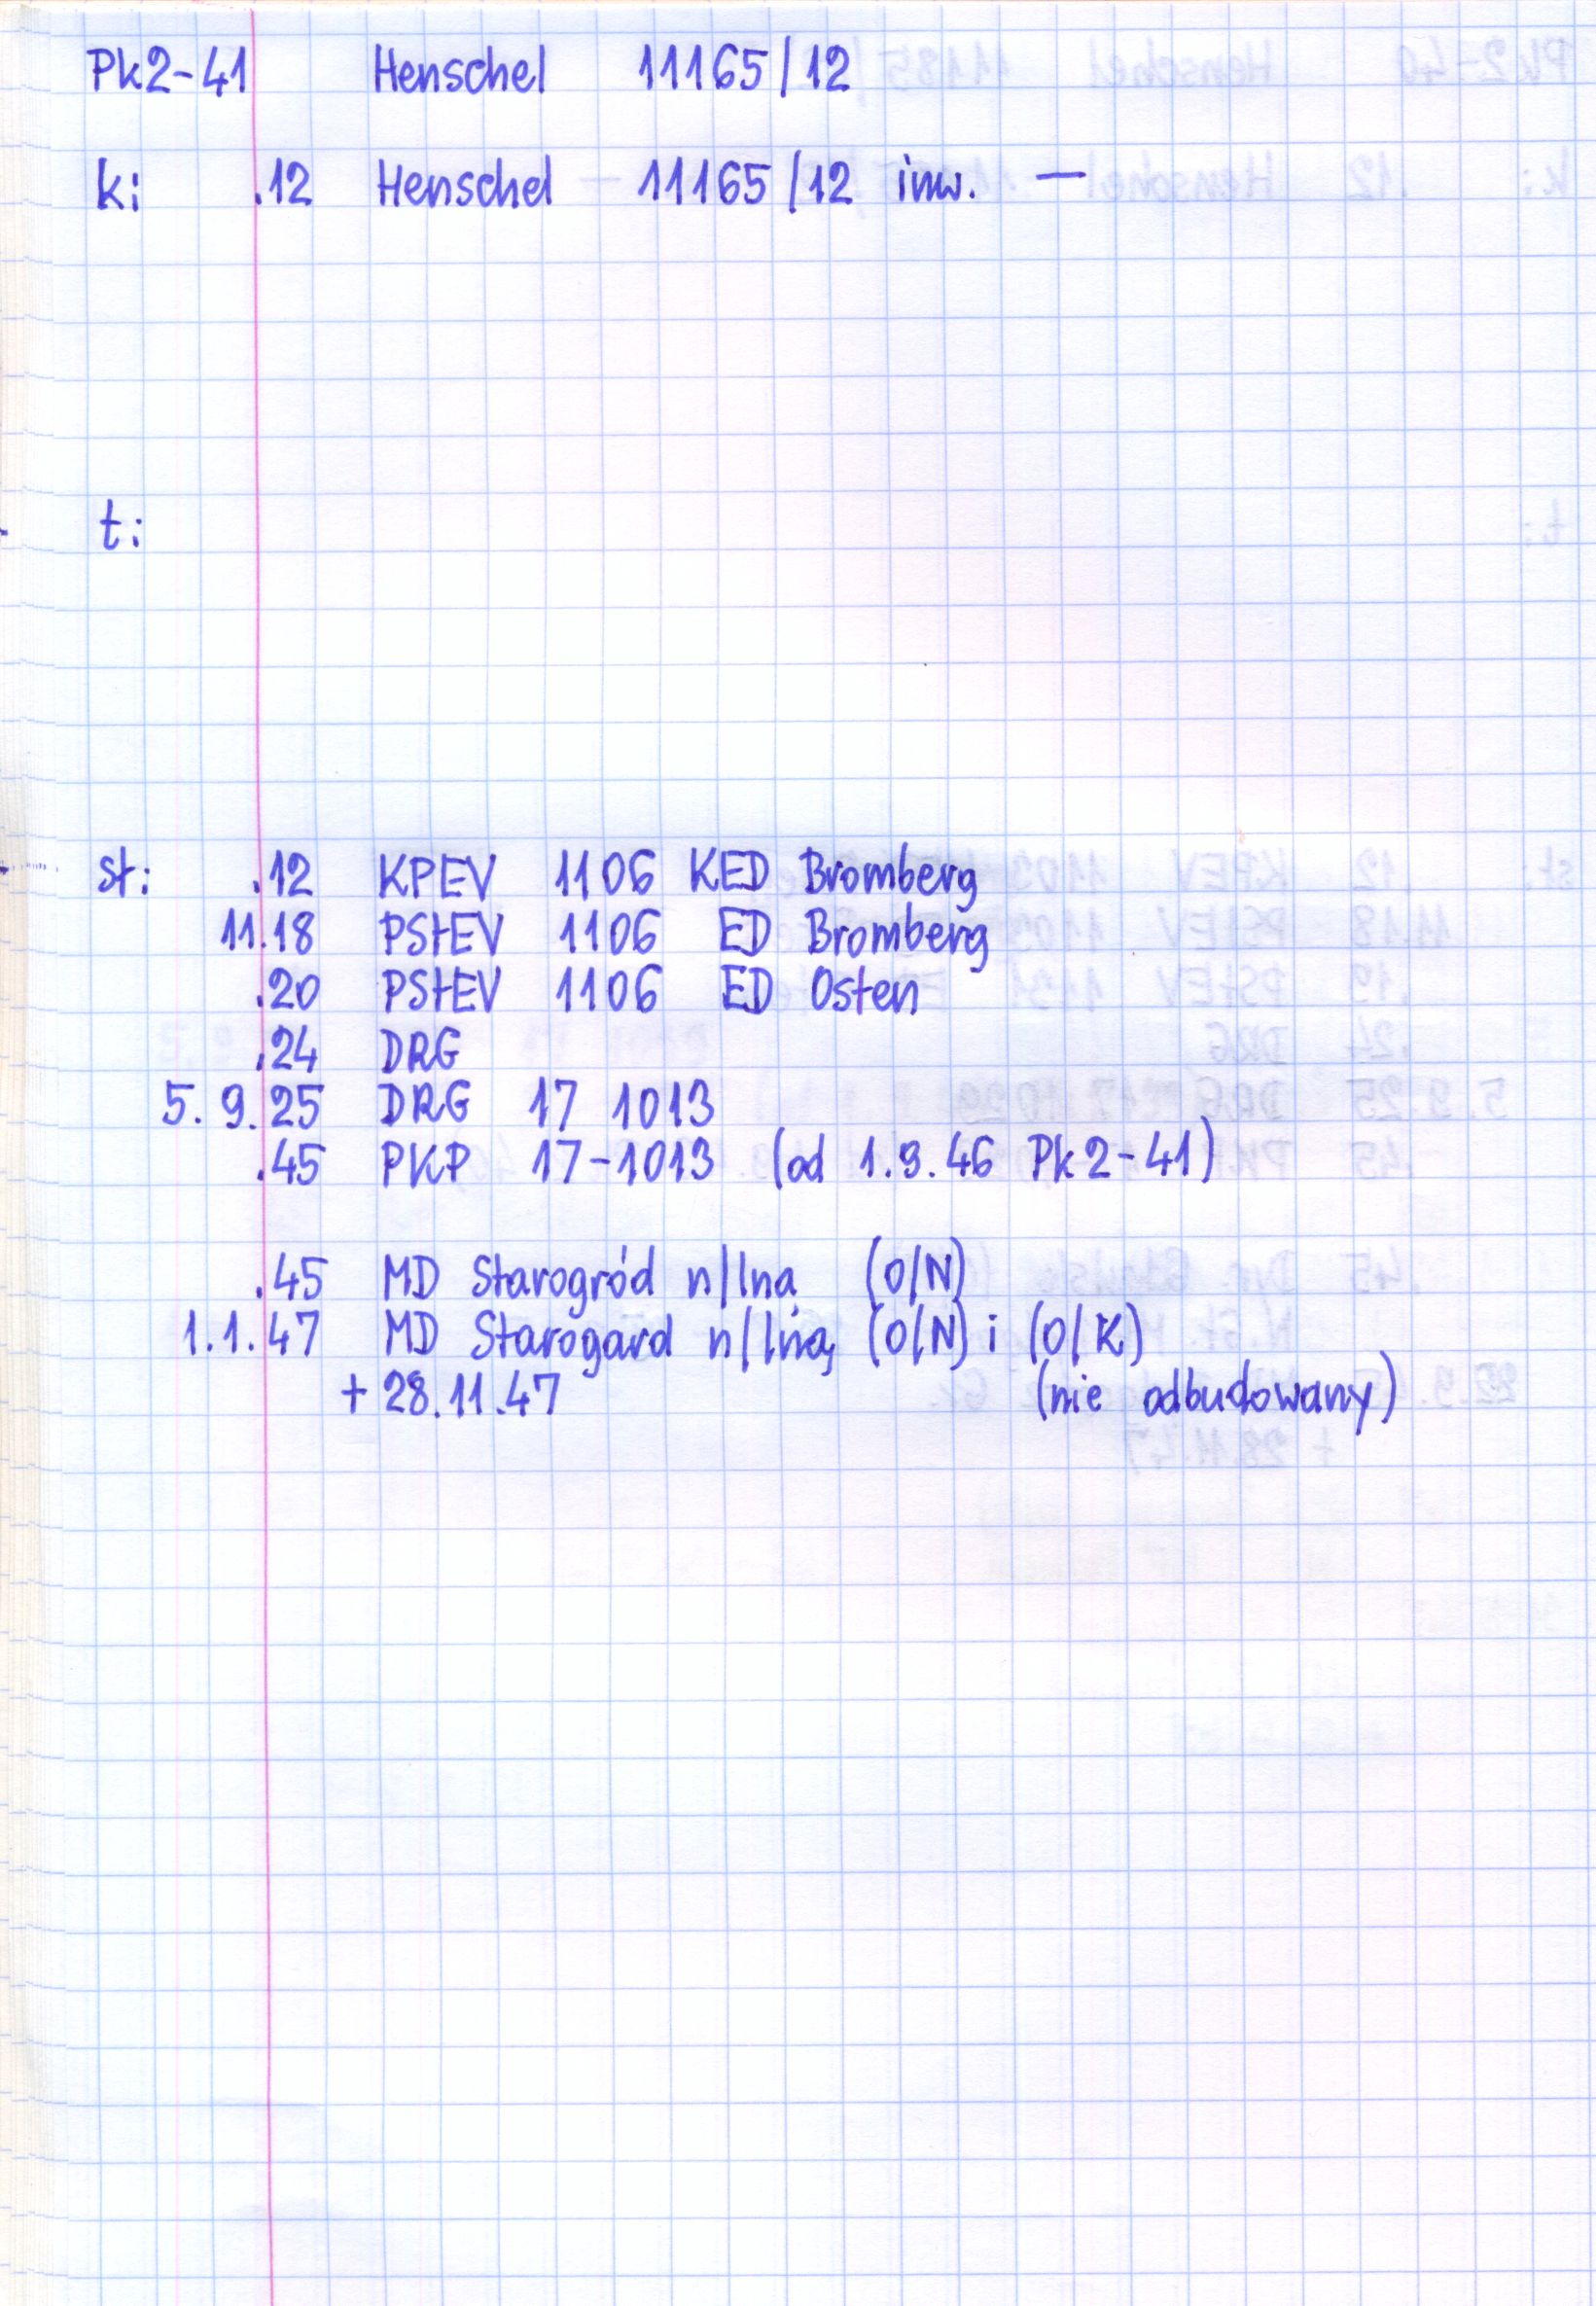 Pk2-41 Henschel 11165/12
k: .12 Henschel 11165/12 inw. —
t:
st: .12 KPEV 1106 KED Bromberg
11.18 PStEV 1106 ED Bromberg
.20 PStEV 1106 ED Osten
.24 DRG
5.9.25 DRG 17 1013
.45 PKP 17-1013 (od 1.9.46 Pk2-41)
.45 MD Starogród n/Iną (O/N)
1.1.47 MD Starogard n/Iną (O/N) i (O/K)
+ 28.11.47 (nie odbudowany)